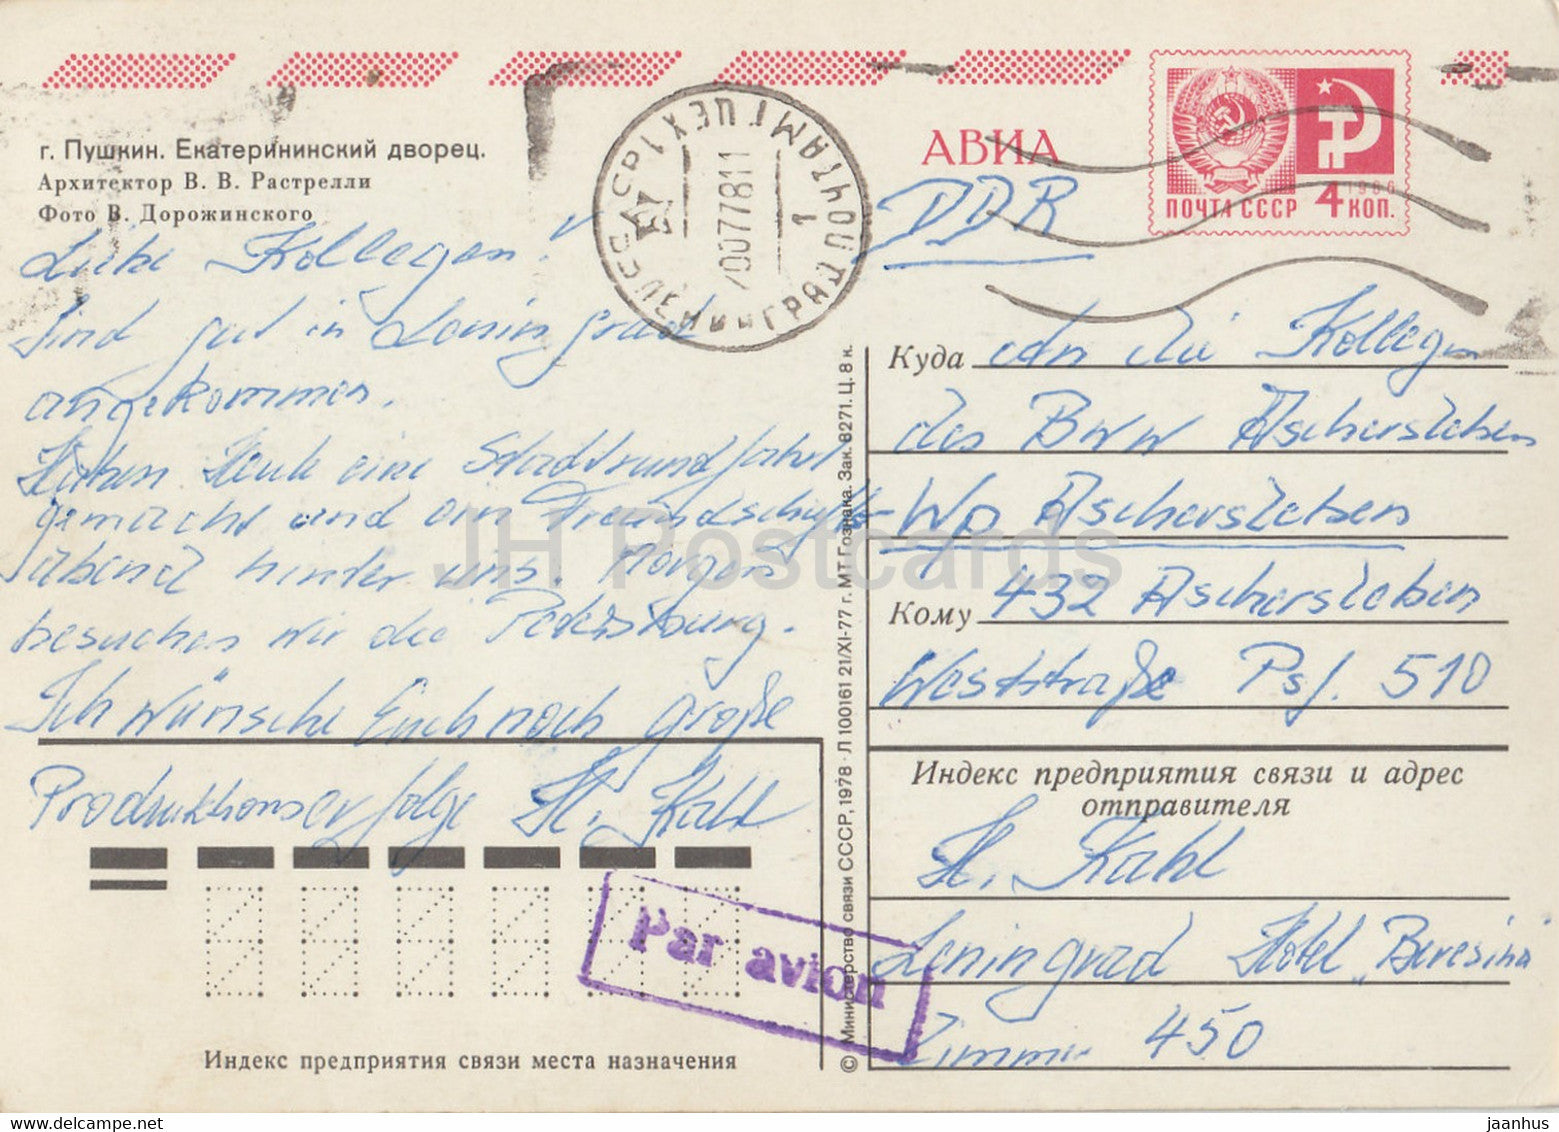 г. Пушкин. Екатерининский дворец.
Архитектор В. В. Растрелли
Фото В. Дорожинского
АВИА
1966
ПОЧТА СССР 4 КОП.
DDR
Liebe Kollegen!
Sind gut in Leningrad
angekommen.
Haben Heute eine Stadtrundfahrt
gemacht und ein Freundschafts-
abend hinter uns. Morgen
besuchen wir die Petersburg.
Ich wünsche Euch noch große
Produktionserfolge H. Kahl
Куда An die Kollegen
des BWW Aschersleben
Wp Aschersleben
Кому 432 Aschersleben
Weststraße Psf. 510
Индекс предприятия связи и адрес
отправителя
H. Kahl
Leningrad Hotel „Beresina"
Zimmer 450
Par avion
Индекс предприятия связи места назначения
© Министерство связи СССР, 1978 · Л 100161 21/XI-77 г. МТ Гознака. Зак. 8271. Ц. 8 к.
JH Postcards
jaanhus
www.delcampe.net